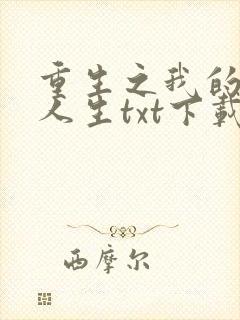 重生之我的
人生txt下载
西摩尔